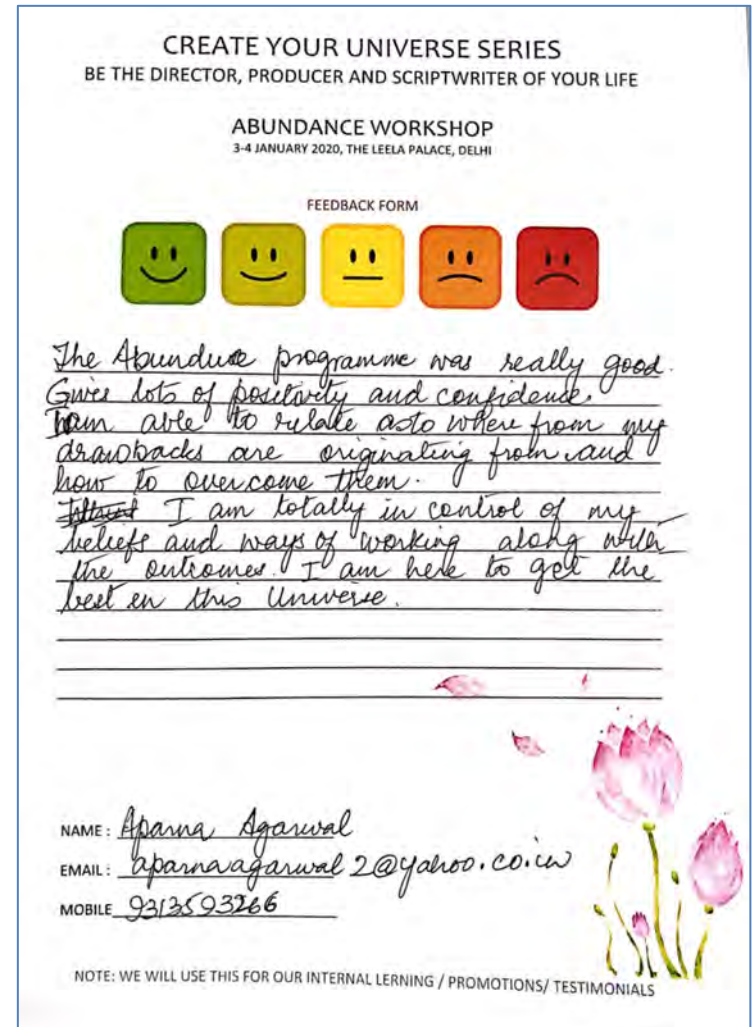 CREATE YOUR UNIVERSE SERIES
BE THE DIRECTOR, PRODUCER AND SCRIPTWRITER OF YOUR LIFE
ABUNDANCE WORKSHOP
3-4 JANUARY 2020, THE LEELA PALACE, DELHI
FEEDBACK FORM
The Abundance programme was really good.
Gives lots of positivity and confidence.
I am able to relate as to where from my
drawbacks are originating from and
how to overcome them.
I am totally in control of my
beliefs and ways of working along with
the outcomes. I am here to get the
best in this Universe.
NAME: Aparna Agarwal
EMAIL: aparnaagarwal2@yahoo.co.in
MOBILE 9313593266
NOTE: WE WILL USE THIS FOR OUR INTERNAL LERNING / PROMOTIONS/ TESTIMONIALS